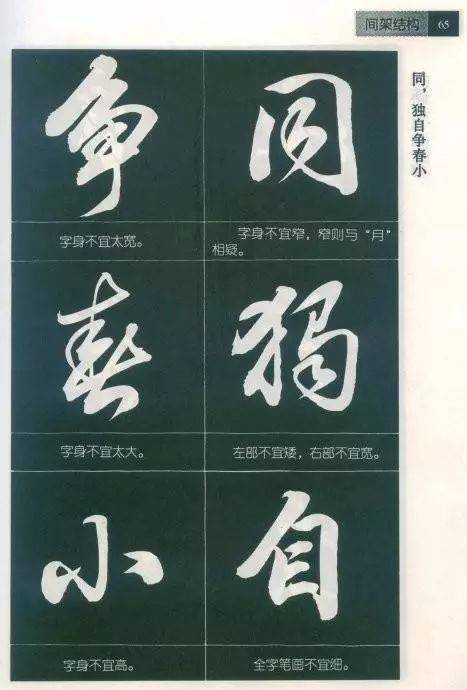 间架结构 65
同，独自争春小
同
字身不宜窄，窄则与“月”
相疑。
独
左部不宜矮，右部不宜宽。
自
全字笔画不宜细。
争
字身不宜太宽。
春
字身不宜太大。
小
字身不宜高。